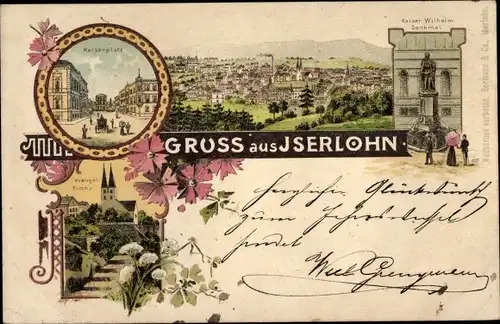 Kaiserplatz
Kaiser Wilhelm
Denkmal
GRUSS aus JSERLOHN.
evangel.
Kirche
Herzlichen Glückwunsch
zum Jahreswechsel
sendet
Nachdruck verboten.